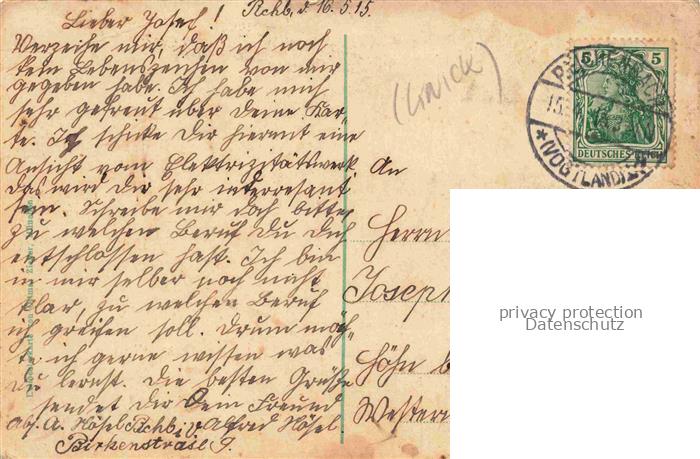 Rchb, d. 16.5.15.
Lieber Josef!
Verzeihe mir, daß ich noch
kein Lebenszeichen von mir
gegeben habe. Ich habe mich
sehr gefreut über Deine Kar-
te. Ich schicke Dir hiermit eine
Ansicht vom Elektrizitätswerk
das wird dir sehr interresant
sein. Schreibe mir doch bitte,
zu welchen Beruf Du Dich
entschlossen hast. Ich bin
in mir selber noch nicht
klar, zu welchen Beruf
ich greifen soll. Drum möch-
te ich gerne wissen was
Du lernst. Die besten Grüße
sendet dir Dein Freund
Alfred Hösel.
Abs. A. Hösel Rchb. i. V.
Birkenstraße 9.
5 5
DEUTSCHES REICH
(VOGTLAND)
An
Herrn
Joseph
Höhn b
Western
privacy protection
Datenschutz